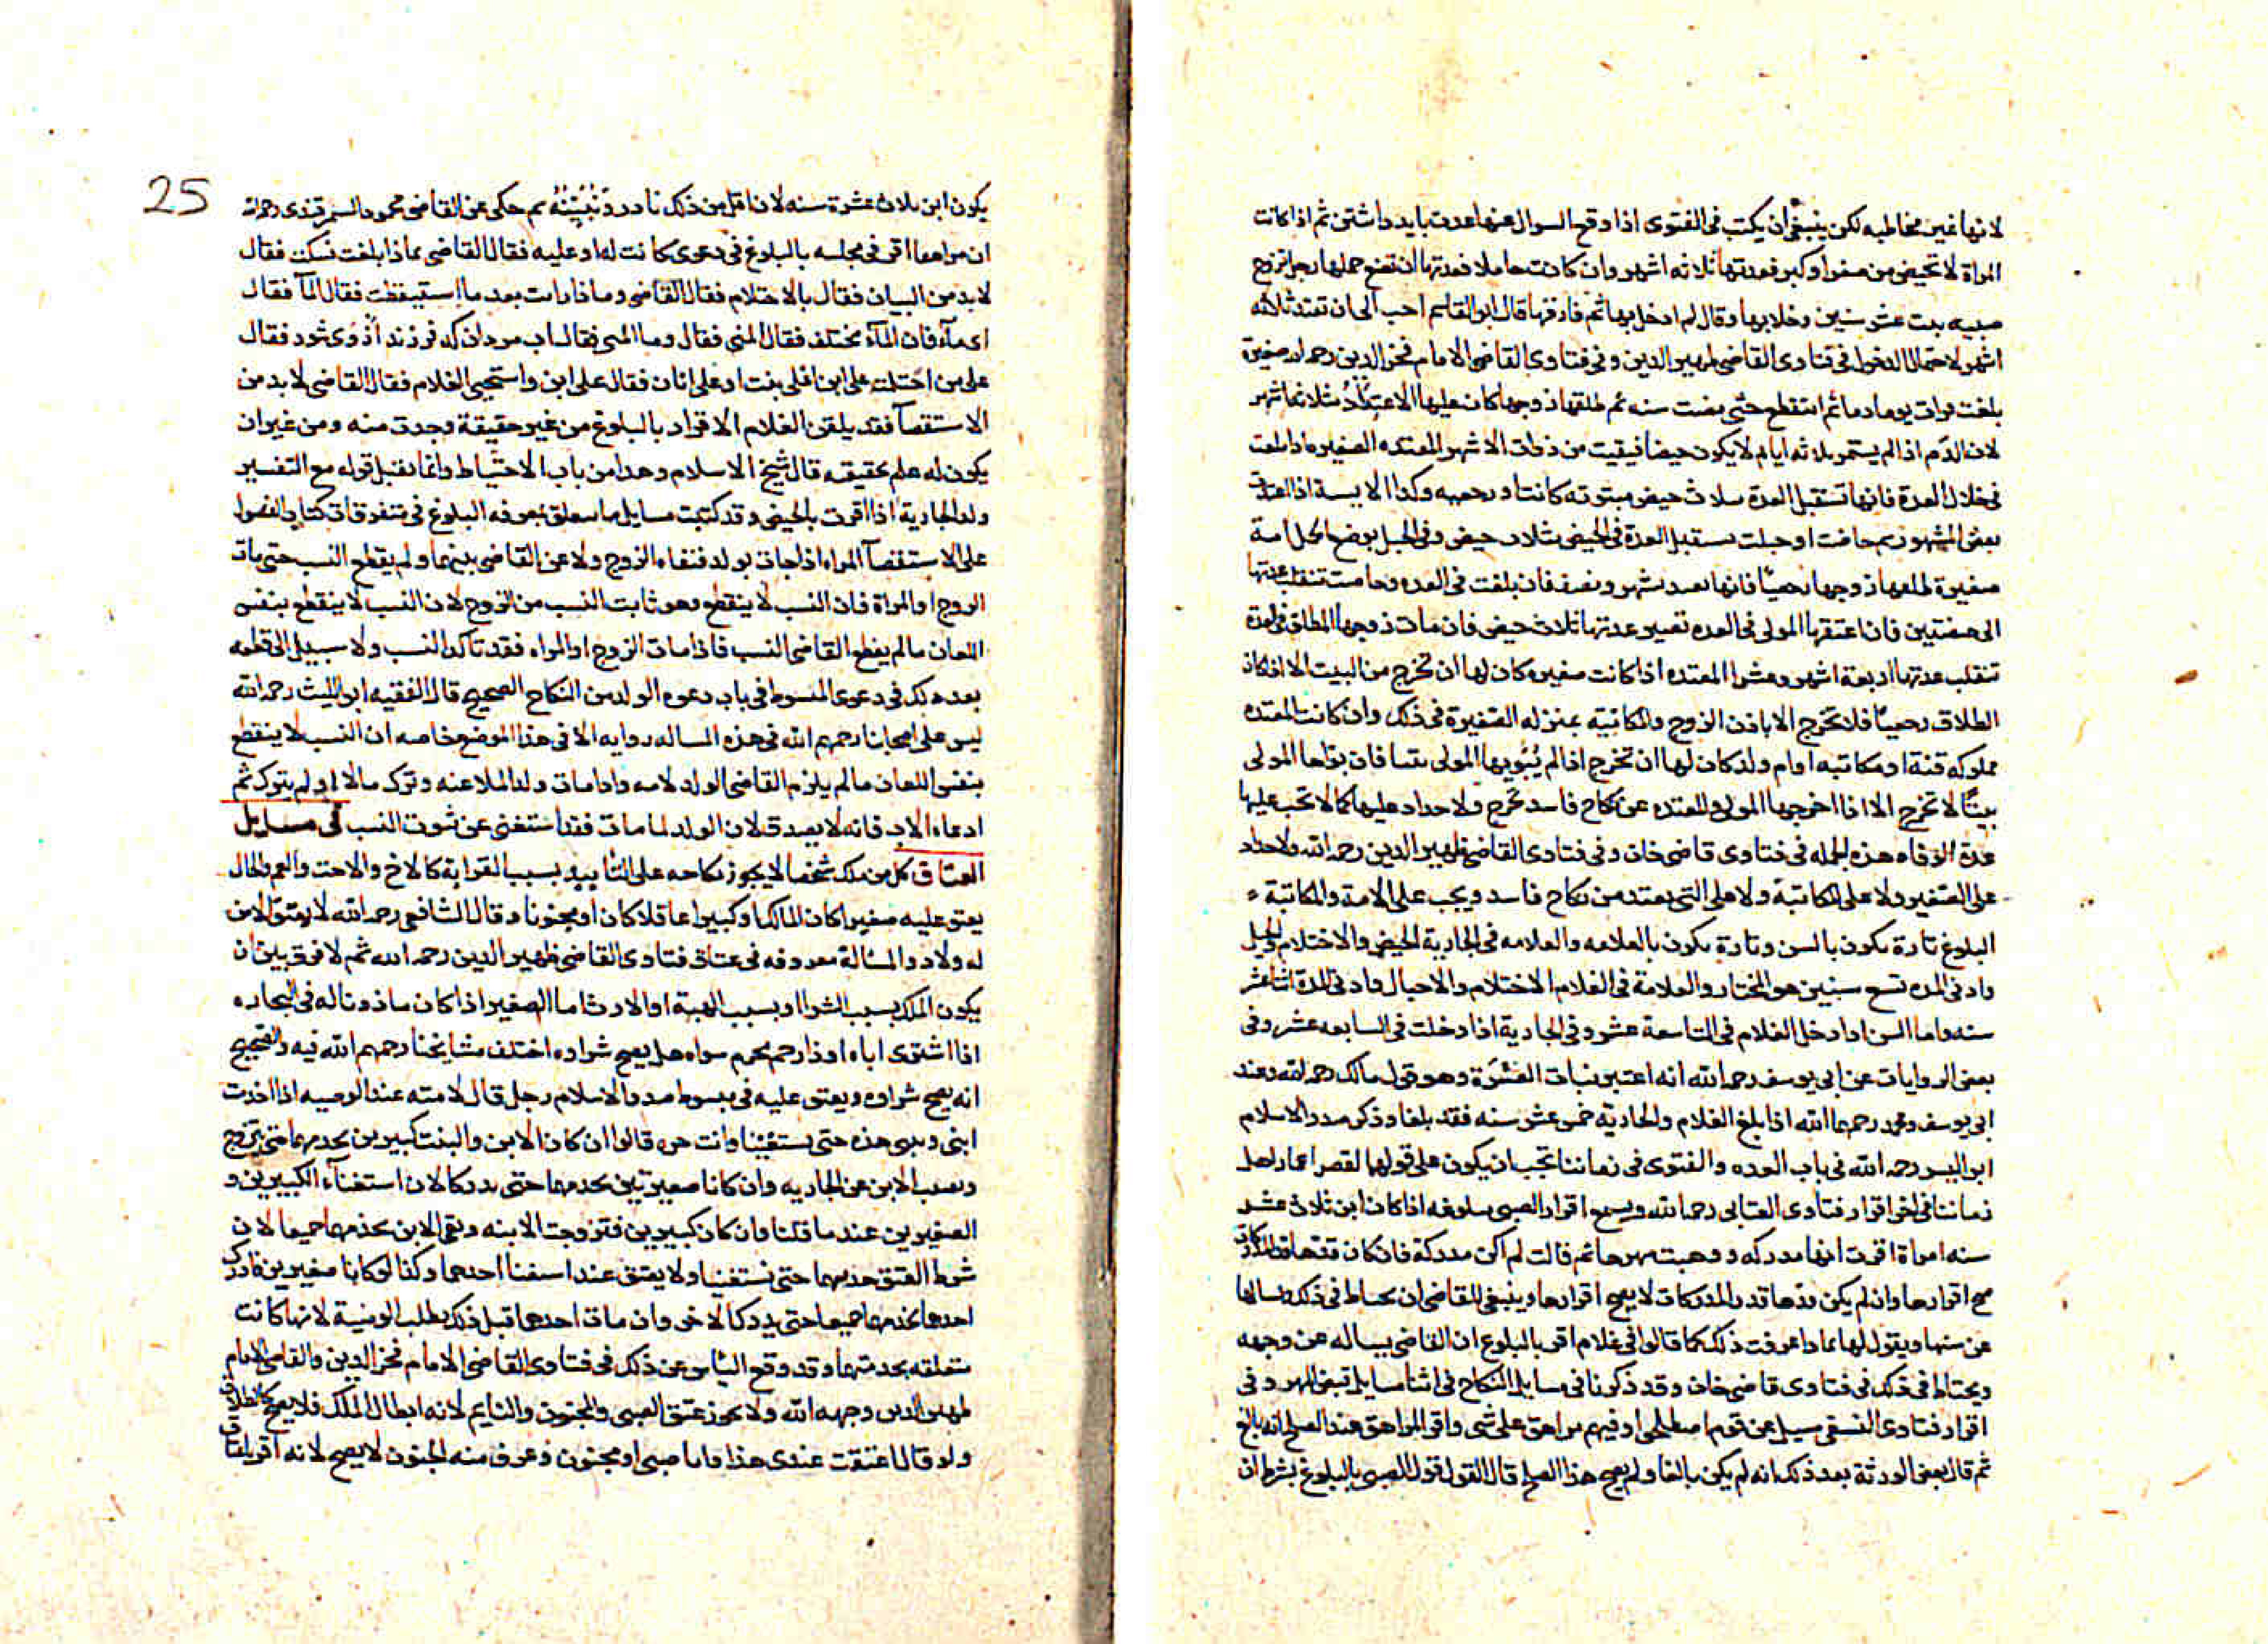 لانها غير مخاطبه لكن ينبغى ان يكتب فى الفتوى اذا وقع السوال عنها عدت بايد داشتن ثم اذا كانت
المراة لا تحيض من صغر او كبر فعدتها ثلاثه اشهر وان كانت حاملا فعدتها ان تضع حملها رجل تزوج
صبيه بنت عشر سنين وخلا بها وقال لم ادخل بها ثم فارقها قال ابو القاسم احب الى ان تعتد ثلاثه
اشهر لاحتمال الدخول فى فتاوى القاضى ظهير الدين وفى فتاوى القاضى الامام فخر الدين رحمه الله صغيرة
بلغت فرات يوما دما ثم انقطع حتى مضت سنه ثم طلقها زوجها كان عليها الاعتداد بثلاثة اشهر
لان الدم اذا لم يستمر ثلاثه ايام لا يكون حيضا فبقيت من ذوات الاشهر المعتده الصغيره اذا بلغت
فى خلال العدة فانها تستقبل العدة بثلاث حيض مبتوته كانت او رجعيه وكذا الايسة اذا اعتدت
بعض الشهور ثم حاضت او حبلت تستقبل العدة فى الحيض بثلاث حيض وفى الحبل بوضع الحمل امة
صغيرة طلقها زوجها رجعيا فانها تعتد بشهر ونصف فان بلغت فى العده وحاضت تنقلب عدتها
الى حيضتين فان اعتقها المولى فى العده تصير عدتها ثلاث حيض فان مات زوجها المطلق فى العدة
تنقلب عدتها اربعة اشهر وعشرا المعتده اذا كانت صغيره كان لها ان تخرج من البيت الا اذا كان
الطلاق رجعيا فلا تخرج الا باذن الزوج والكتابية بمنزله الصغيرة فى ذلك وان كانت المعتده
مملوكه قنة او مكاتبه او ام ولد كان لها ان تخرج اذا لم يبويها المولى بيتا فان بواها المولى
بيتا لا تخرج الا اذا اخرجها المولى والمعتده عن نكاح فاسد تخرج ولا حداد عليها كما لا تجب عليها
عدة الوفاه هذه الجمله فى فتاوى قاضى خان وفى فتاوى القاضى ظهير الدين رحمه الله ولا حداد
على الصغير ولا على الكتابية ولا على التى تعتد من نكاح فاسد ويجب على الامة والمكاتبة
البلوغ تارة يكون بالسن وتارة يكون بالعلامه والعلامه فى الجارية الحيض والاحتلام والحبل
وادنى المده تسع سنين هو المختار والعلامة فى الغلام الاحتلام والاحبال وادنى المدة اثنا عشر
سنه واما السن اذا دخل الغلام فى التاسعة عشر وفى الجارية اذا دخلت فى السابعه عشر وفى
بعض الروايات عن ابى يوسف رحمه الله انه اعتبر نبات الشعرة وهو قول مالك رحمه الله وعند
ابى يوسف ومحمد رحمهما الله اذا بلغ الغلام والجارية خمس عشر سنه فقد بلغا وذكر صدر الاسلام
ابو اليسر رحمه الله فى باب العده والفتوى فى زماننا يجب ان يكون على قولهما لقصر اعمار اهل
زماننا فى اخر اقرار فتاوى العتابى رحمه الله ويصح اقرار الصبى ببلوغه اذا كان ابن ثلاث عشر
سنه امراة اقرت انها مدركه ووهبت مهرها ثم قالت لم اكن مدركة فان كان قدها قد المدركات
صح اقرارها وان لم يكن قدها قد المدركات لا يصح اقرارها وينبغى للقاضى ان يحتاط فى ذلك ويسالها
عن سنها ويقول لها بماذا عرفت ذلك كما قالوا فى غلام اقر بالبلوغ ان القاضى يساله عن وجهه
ويحتاط فى ذلك فى فتاوى قاضى خان وقد ذكرنا فى مسايل النكاح فى اثنا مسايل قبض المهر وفى
اقرار فتاوى النسفى سيل عن قوم اصطلحوا وفيهم مراهق على شى واقر المراهق عند الصلح انه بالغ
ثم قال بعض الورثة بعد ذلك انه لم يكن بالغا ولم يصح هذا الصلح قال القول قول الصبى بالبلوغ بشرط ان
25
يكون ابن ثلاث عشرة سنه لان اقل من ذلك نادر ثم حكى عن القاضى محمود السمرقندى رحمه الله
ان مراهقا اقر فى مجلسه بالبلوغ فى دعوى كانت له او عليه فقال القاضى بماذا بلغت فسكت فقال
لا بد من البيان فقال بالاحتلام فقال القاضى وماذا رايت بعد ما استيقظت فقال المآ فقال
اى مآء فان المآء مختلف فقال المنى فقال وما المنى فقال اب مردان كه فرزند از وى شود فقال
على من احتلمت على ابن او على بنت او على اتان فقال على ابن واستحيى الغلام فقال القاضى لا بد من
الاستقصآ فقد يلقن الغلام الاقرار بالبلوغ من غير حقيقة وجدت منه ومن غير ان
يكون له علم بحقيقه قال شيخ الاسلام وهذا من باب الاحتياط وانما يقبل قوله مع التفسير
وكذا الجارية اذا اقرت بالحيض وقد كتبت مسايل ما يتعلق بمعرفه البلوغ فى متفرقات كتاب الفصول
على الاستقصآ المراه اذا جات بولد فنفاه الزوج ولاعن القاضى بينهما ولم يقطع النسب حتى مات
الزوج او المراة فان النسب لا ينقطع وهو ثابت النسب من الزوج لان النسب لا ينقطع بنفس
اللعان ما لم يقطع القاضى النسب فاذا مات الزوج او المراه فقد تاكد النسب ولا سبيل الى قطعه
بعد ذلك فى دعوى المبسوط فى باب دعوه الولد من النكاح الصحيح قال الفقيه ابو الليث رحمه الله
ليس على اصحابنا رحمهم الله فى هذه المساله روايه الا فى هذا الموضع خاصه ان النسب لا ينقطع
بنفس اللعان ما لم يلزم القاضى الولد لامه واذا مات ولد الملاعنه وترك مالا او لم يترك ثم
ادعاه الاب فانه لا يصدق لان الولد لما مات فقد استغنى عن ثبوت النسب فى مسايل
العتاق كل من ملك شخصا لا يجوز نكاحه على التابيد بسبب القرابة كالاخ والاخت والعم والخال
يعتق عليه صغيرا كان المالك او كبيرا عاقلا كان او مجنونا وقال الشافعى رحمه الله لا يعتق الا من
له ولاد والمسالة معروفه فى عتاق فتاوى القاضى ظهير الدين رحمه الله ثم لا فرق بين ان
يكون الملك بسبب الشرا او بسبب الهبة او الارث اما الصغير اذا كان ماذونا له فى التجاره
اذا اشترى اباه او ذا رحم محرم سواه هل يصح شراوه اختلف مشايخنا رحمهم الله فيه والصحيح
انه يصح شراوه ويعتق عليه فى مبسوط صدر الاسلام رجل قال لامته عند الوصيه اذا اخدمت
ابنى وبنتى هذه حتى يستغنيا وانت حره قالوا ان كان الابن والبنت كبيرين تخدمهما حتى تتزوج
ويصيب الابن من الجاريه وان كانا صغيرتين تخدمهما حتى يدركا لان استغنآء الكبيرين و
الصغيرين عند ما قلنا وان كان كبيرين فتزوجت الابنه وبقى الابن تخدمهما جميعا لان
شرط العتق خدمتهما حتى يستغنيا ولا يعتق عند استغنا احدهما وكذا لو كانا صغيرين فادرك
احدهما تخدمهما جميعا حتى يدرك الاخر وان مات احدهما قبل ذلك بطلت الوصية لانها كانت
متعلقه بخدمتهما وقد وقع الياس عن ذلك فى فتاوى القاضى الامام فخر الدين والقاضى الامام
ظهير الدين رحمهما الله ولا يجوز عتق الصبى والمجنون والنايم لانه ابطال الملك فلا يصح كالطلاق
ولو قال اعتقت عبدى هذا وانا صبى او مجنون وعرف منه الجنون لا يصح لانه اقر